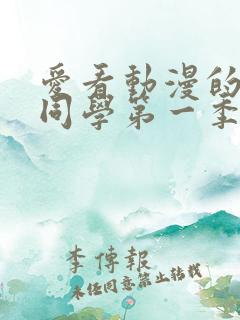 愛看動漫的
同學第一季
李傳報
未經同意禁止轉載